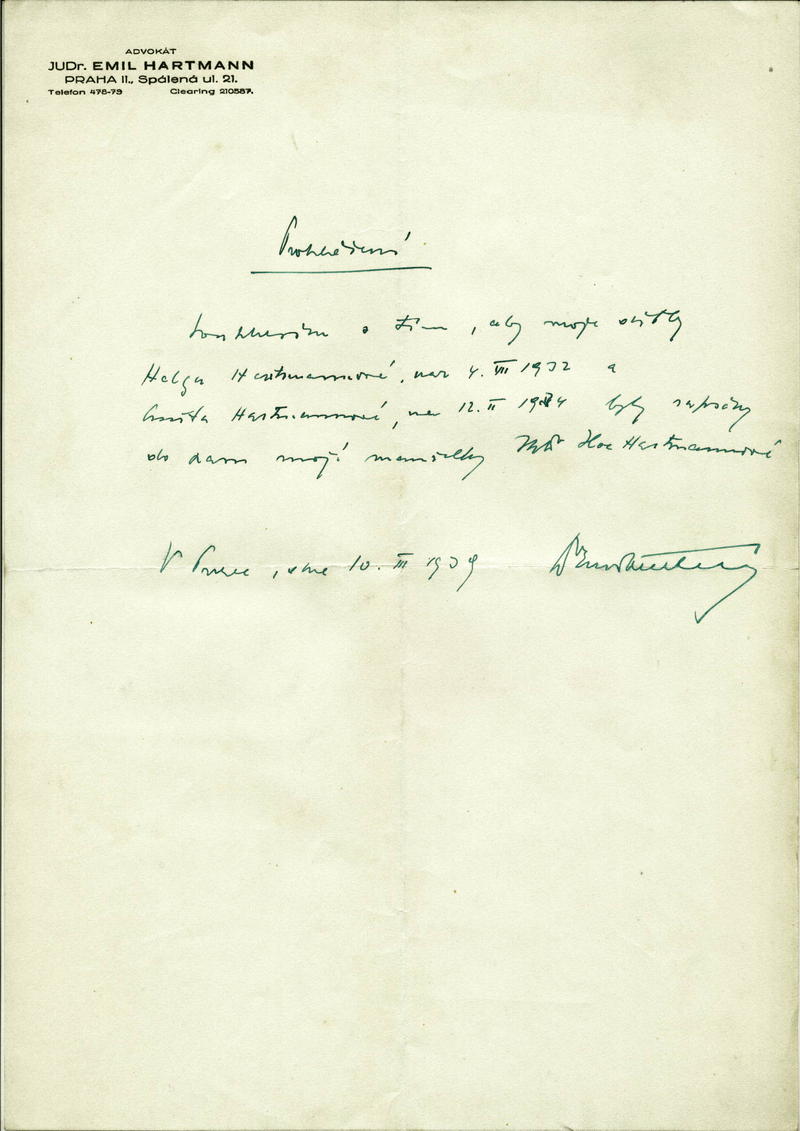 ADVOKÁT
JUDr. EMIL HARTMANN
PRAHA II., Spálená ul. 21.
Telefon 478-79 Clearing 210587.
Prohlášení
Souhlasím s tím, aby moje dítky
Helga Hartmannová, nar 4. VII 1932 a
Hartmannová, nar 12. II 1934 byly zapsány
do pasu mojí manželky Hartmannové
V Praze, dne 10. III 1939